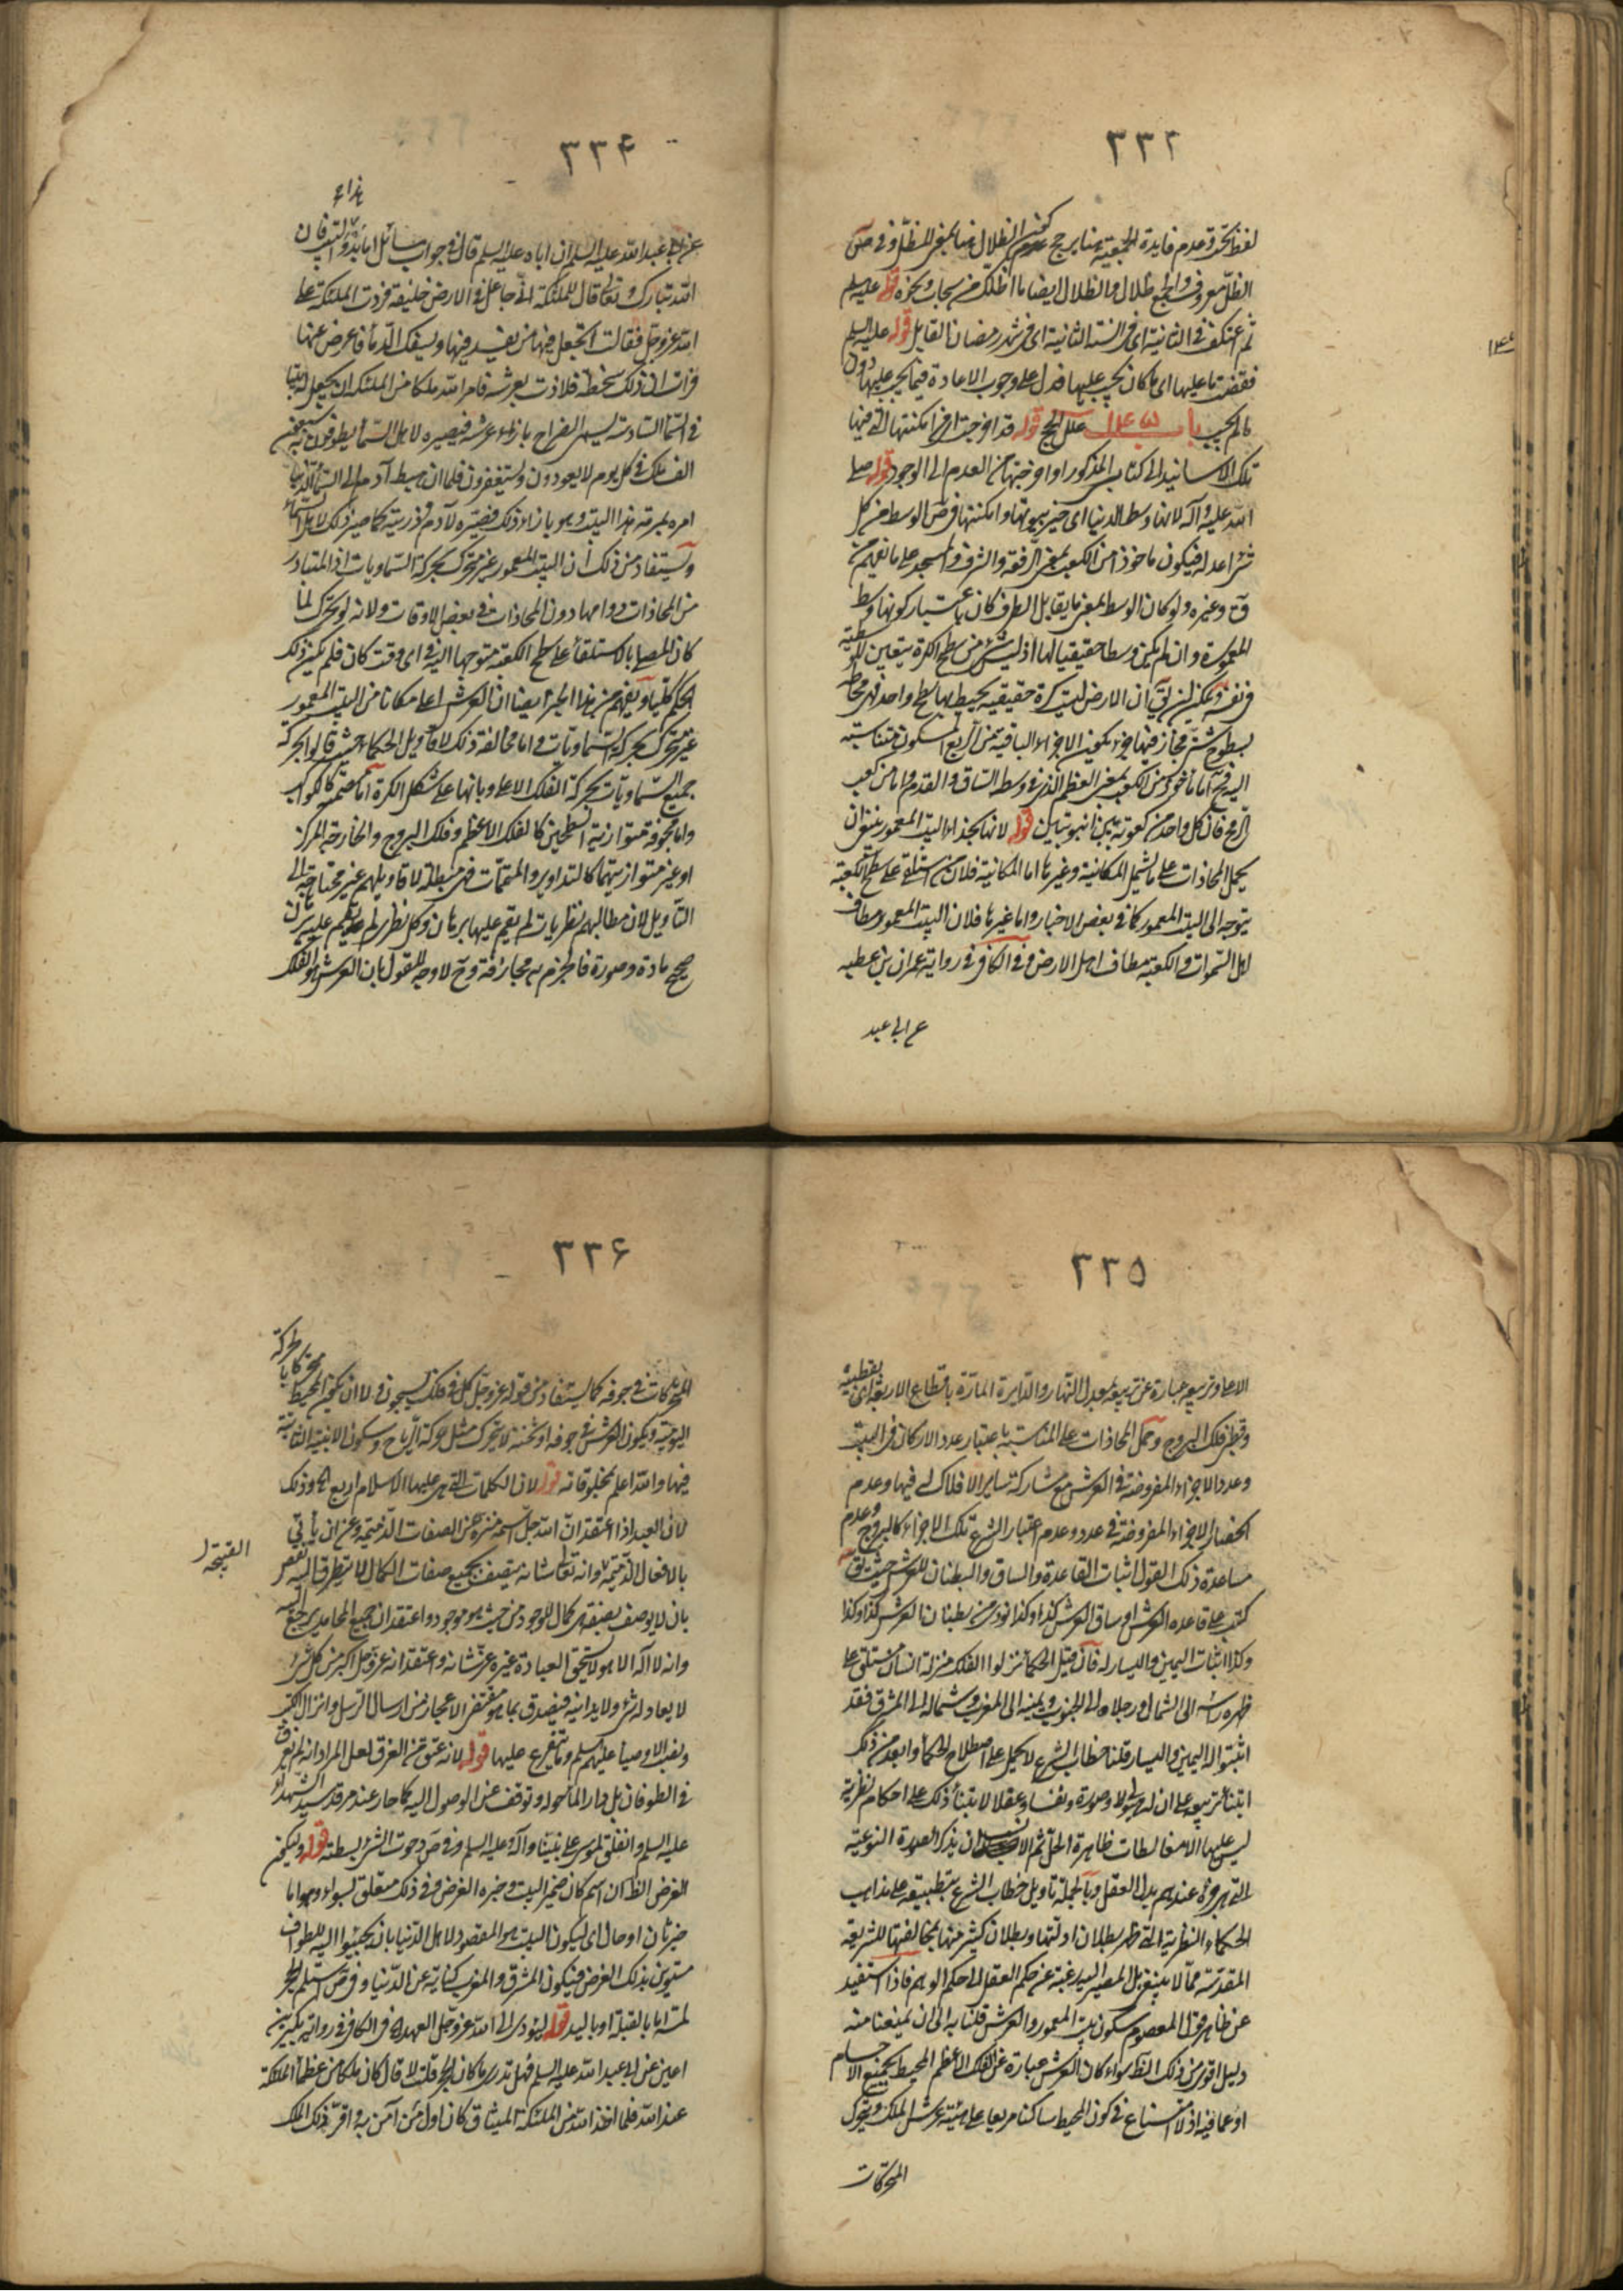 ٣٣٣
الظلّ معروف والجمع ظلال والظلال ايضا ما اظلّك من سحاب ونحوه قوله عليه السلم
ثم اعتكف في الثانية اى في السنة الثانية اى في شهر رمضان القابل قوله عليه السلم
فقضت ما عليها اى ما كان يجب عليها فدل على وجوب الاعادة فيما يجب عليها دون
ما لم يجب باب علل الحج قوله قد اخرجت
تلك الاسانيد في كتاب المذكور او اخرجتها من العدم الى الوجود قوله صلى
الله عليه وآله لانها وسط الدنيا اى خير بيوتها وامكنتها فى ض الوسط من كل
شئ اعدله فيكون ماخوذا من الكعب بمعنى الرفعة والشرف والمجد على ما يفهم من
ق وغيره ولو كان الوسط بمعنى ما يقابل الطرف كان باعتبار كونها وسط
المعمورة وان لم يكن وسطا حقيقيا لها اذ ليس شئ من سطح الكرة يتعين للوسطية
في نفسه ويمكن ان يق ان الارض ليست كرة حقيقية يحيط بها سطح واحد فهى محاطة
بسطوح شتى فجاز فيها جزء يكون الاجزاء الباقية من الربع المسكون متناسبة
اليه فح اما مأخوذ من الكعب بمعنى العظم الذى في وسط الساق والقدم واما من كعب
الرمح فان كل واحد من كعوبه بين انبوبتين قوله لانها بحذاء البيت المعمور ينبغى ان
يحمل المحاذات على ما يشمل المكانية وغيرها اما المكانية فلان من استلقى على سطح الكعبة
يتوجه الى البيت المعمور كما في بعض الاخبار واما غيرها فلان البيت المعمور مطاف
اهل السموات والكعبة مطاف اهل الارض وفي الكافى في رواية عمران بن عطية
عن ابى عبد
١٤٤
٣٣٤
عن ابى عبد الله عليه السلم ان اباه عليه السلم قال في جواب سائل اما بدؤ هذا البيت فان
الله تبارك وتعالى قال للملئكة انّى جاعل في الارض خليفة فردت الملئكة على
الله عزوجل فقالت اتجعل فيها من يفسد فيها ويسفك الدماء فاعرض عنها
فرات ان ذلك سخطه فلاذت بعرشه فامر الله ملكا من الملئكة ان يجعل له بيتا
في السماء السادسة يسمى الضراح بازاء عرشه فصيره لاهل السماء يطوفون به سبعون
الف ملك في كل يوم لا يعودون ويستغفرون فلما ان هبط آدم الى السماء الدنيا
امره بمرمة هذا البيت وهو بازاء ذلك فصيّره لآدم وذريته كما صير ذلك لاهل السماء
ويستفاد من ذلك أن البيت المعمور غير متحرك بحركة السماويات اذ المتبادر
من المحاذات دوامها دون المحاذات في بعض الاوقات ولانه لو تحرك لما
كان المصلى بالاستلقاء على سطح الكعبة متوجها اليه في اى وقت كان فلم يكن ذلك
الحكم كليا ويفهم من هذا الخبر ايضا ان العرش اعلى مكانا من البيت المعمور
غير متحرك بحركة السماويات واما مخالفة ذلك لاقاويل الحكماء حيث قالوا بحركة
جميع السماويات بحركة الفلك الاعلى وبانها على شكل الكرة اما مصمتة كالكواكب
واما مجوفة متوازية السطحين كالفلك الاعظم وفلك البروج والخارجة المركز
او غير متوازيتهما كالتداوير والمتممات فهى مبطلة لاقاويلهم غير محتاجة الى
التأويل لان مطالبهم نظريات لم يقم عليها برهان وكل نظرى لم يقم عليه برهان
صحيح مادة وصورة فالجزم به مجازفة وح لا وجه للقول بان العرش هو الفلك
٣٣٥
الاعلى وتربيعه عبارة عن تربيعه بمعدل النهار والدايرة المارّة باقطاع الاربعة اى بقطبيه
وقطبى فلك البروج وحمل المحاذات على المناسبة باعتبار عدد الاركان في البيت
وعدد الاجزاء المفروضة في العرش مع مشاركة ساير الافلاك له فيها وعدم
انحصار الاجزاء المفروضة في عدد وعدم اعتبار الشرع تلك الاجزاء كالبروج وعدم
مساعدة ذلك القول اثبات القاعدة والساق والبطنان للعرش حيث يق
كتب على قاعدة العرش او ساق العرش كذا وكذا ونودى من بطنان العرش كذا وكذا
وكذا اثبات اليمين واليسار له فان قيل الحكماء نزلوا الفلك منزلة انسان مستلق على
ظهره راسه الى الشمال ورجلاه الى الجنوب ويمينه الى المغرب وشماله الى المشرق فقد
اثبتوا له اليمين واليسار قلنا خطاب الشرع لا يحمل على اصطلاح الحكماء وابعد من ذلك
ابتناء تربيعه على ان له هيولى وصورة ونفسا وعقلا لابتناء ذلك على احكام نظرية
ليس عليها الا مغالطات ظاهرة الحال ثم الانسب ان يذكر الصورة النوعية
التى هى جزء عندهم بدل العقل وبالجملة تأويل خطاب الشرع بتطبيقه على مذاهب
الحكماء النظرية التى ظهر بطلان ادلتها وبطلان كثير منها بمخالفتها للشريعة
المقدسة مما لا ينبغى بل المصير اليه رغبة عن حكم العقل الى حكم الوهم فاذا استفيد
عن ظاهر قول المعصوم سكون بيت المعمور والعرش قلنا به الى ان يمنعنا منه
دليل اقوى من ذلك الظاهر سواء كان العرش عبارة عن الفلك الاعظم المحيط بجميع الاجسام
او عما فيه اذ لا امتناع في كون المحيط ساكنا مربعا على هيئة عرش الملك ويتحرك
المتحركات
٣٣٦
المتحركات في جوفه كما يستفاد من قوله عزوجل كل في فلك يسبحون ولا ان يكون المحيط متحركا بالحركة
اليومية ويكون العرش في جوفه او تحته لا يتحرك مثل حركة الرياح وسكون الابنية الثابتة
فيها والله اعلم بمخلوقاته قوله لان الكلمات التى بنى عليها الاسلام اربع الخ وذلك
لان العبد اذا اعتقد انّ الله جل اسمه منزه عن الصفات الذميمة وعن ان يأتى
بالافعال الذميمة وانه تعالى شانه متصف بجميع صفات الكمال لا يتطرق اليه نقص
القبيحة
بان لا يوصف بصفة هى كمال للموجود من حيث هو موجود واعتقد ان جميع المحامد يرجع اليه
وانه لا اله الا هو لا يستحق العبادة غيره عز شانه واعتقد انه عزوجل اكبر من كل شئ
لا يعادله شئ ولا يدانيه فيصدق بما هو مقتضى الاعجاز من ارسال الرسل وانزال الكتب
ونصب الاوصياء عليهم السلم وما يتفرع عليها قوله لانه عتق من الغرق لعل المراد انه لم يغرق
في الطوفان بل دار الماء حوله وتوقف عن الوصول اليه كما حار عند مرقد سيد الشهداء
عليه السلم وانفلق لموسى على نبينا وآله وعليه السلم وفي ص دحوت الشئ بسطته قوله وليكن
الغرض الظ ان اسم كان ضمير البيت وخبره الغرض وفي ذلك متعلق بسواء وهو اما
خبر ثان او حال اى ليكون البيت هو المقصود لاهل الدنيا بان يجيئوا اليه للطواف
مستوين بذلك الغرض فيكون المشرق والمغرب كناية عن الدنيا وفي ض استلم الحجر
لمسه اما بالقبلة او باليد قوله ليؤدى الى الله عزوجل العهد في الكافى في رواية بكير بن
اعين عن ابى عبد الله عليه السلم فهل تدرى ما كان الحجر قلت لا قال كان ملكا من عظماء الملئكة
عند الله فلما اخذ الله من الملئكة الميثاق كان اول من آمن به واقر ذلك الملك